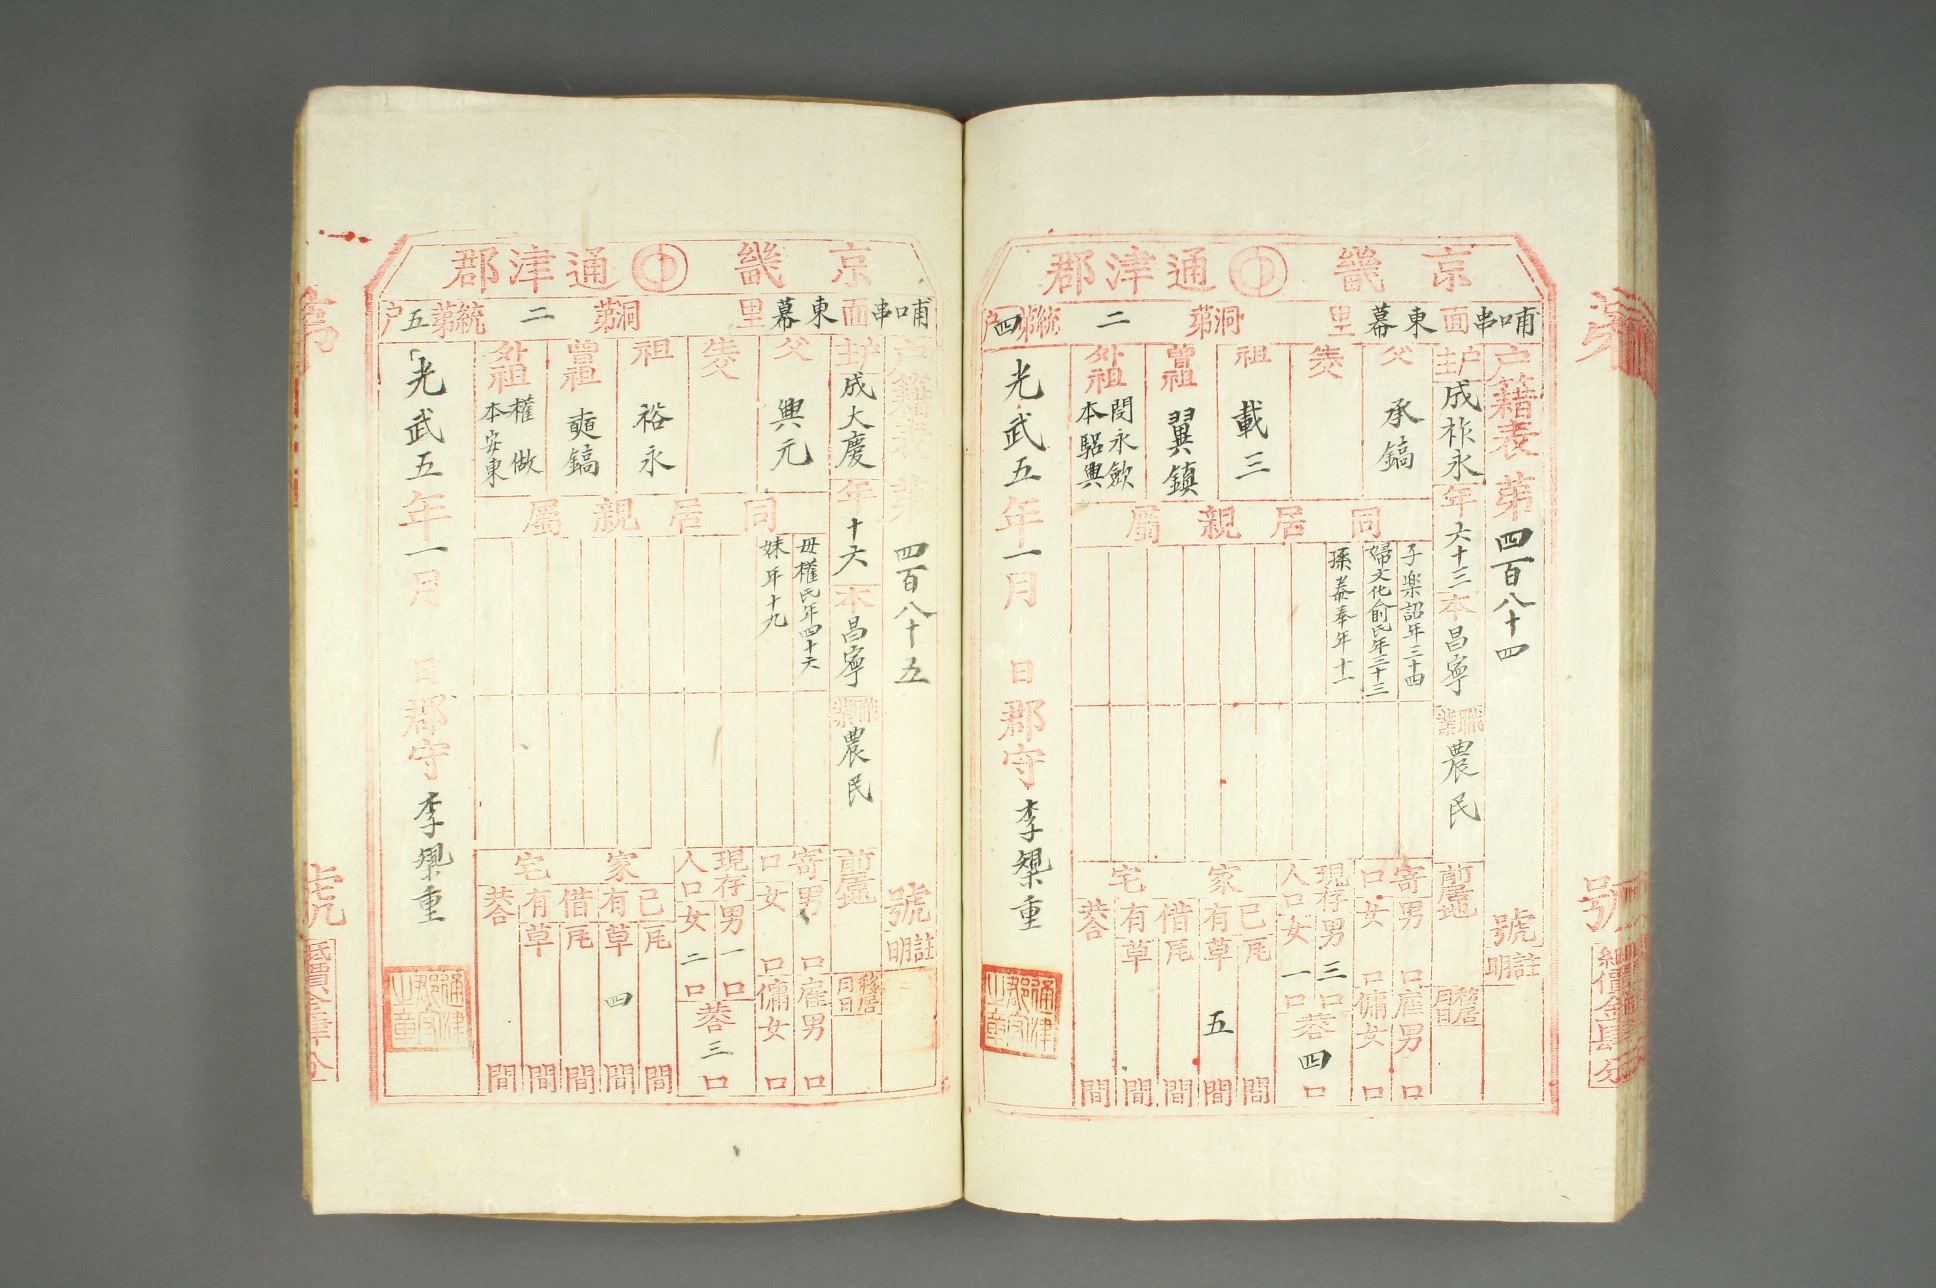 京畿 通津郡
哺口串面 東幕里 洞第二統第四户
户籍表 第四百八十四號 註明
户主 成祚永 年六十三 本昌寧 職業 農民 前居地 移居月日
父 承鎬
生父
祖 載三
曾祖 翼鎮
外祖 閔永 本驪興
同居親屬
子樂詔年三十四
婦文化俞氏年三十三
孫 奉年十一
寄口 男 口 女 口 雇男 口 傭女 口
現存人口 男三口 女一口 共四口
家宅 己有 瓦 間 草 五 間 借有 瓦 間 草 間 共 間
光武五年一月 日 郡守 李 重
通津郡守之章
號 紙價金肆分
京畿 通津郡
哺口串面 東幕里 洞第二統第五户
户籍表 第四百八十五號 註明
户主 成大慶 年十六 本昌寧 職業 農民 前居地 移居月日
父 興元
生父
祖 裕永
曾祖 鎬
外祖 權 做 本安東
同居親屬
母權氏年四十六
妹年十九
寄口 男 口 女 口 雇男 口 傭女 口
現存人口 男一口 女二口 共三口
家宅 己有 瓦 間 草 四 間 借有 瓦 間 草 間 共 間
光武五年一月 日 郡守 李 重
通津郡守之章
號 紙價金肆分